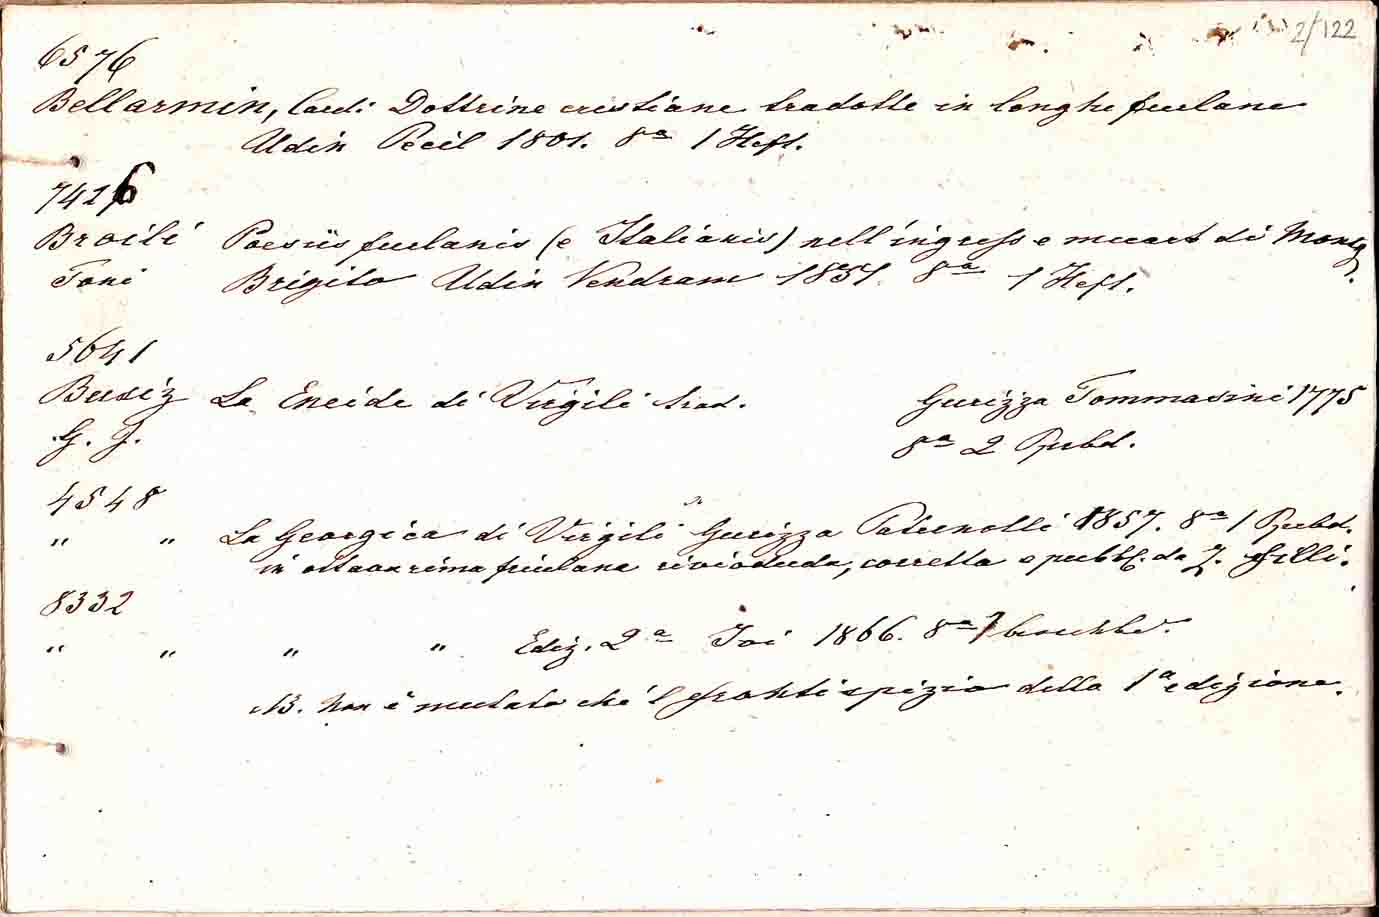 2/122
6576
Bellarmin, Card: Dottrine cristiane tradotte in lenghe furlane
Udin Pecil 1801. 8° 1 Heft.
7426
Broili Poesiis furlanis (e Italianis) nell'ingress e muart di Mons.
Toni Brigito Udin Vendrame 1851. 8° 1 Heft.
5641
Busiz La Eneide di Virgili trad. Gurizza Tommasini 1775
G. G. 8° 2 Ppbd.
4548
" " La Georgica di Virgili Gurizza Paternolli 1857. 8° 1 Ppbd.
in ottava rima friulana riviodude, corretta e pubbl. da
8332
" " " " Ediz. 2ª Ivi 1866. 8° 1
NB. Non è mutato che 'l frontispizio della 1ª edizione.